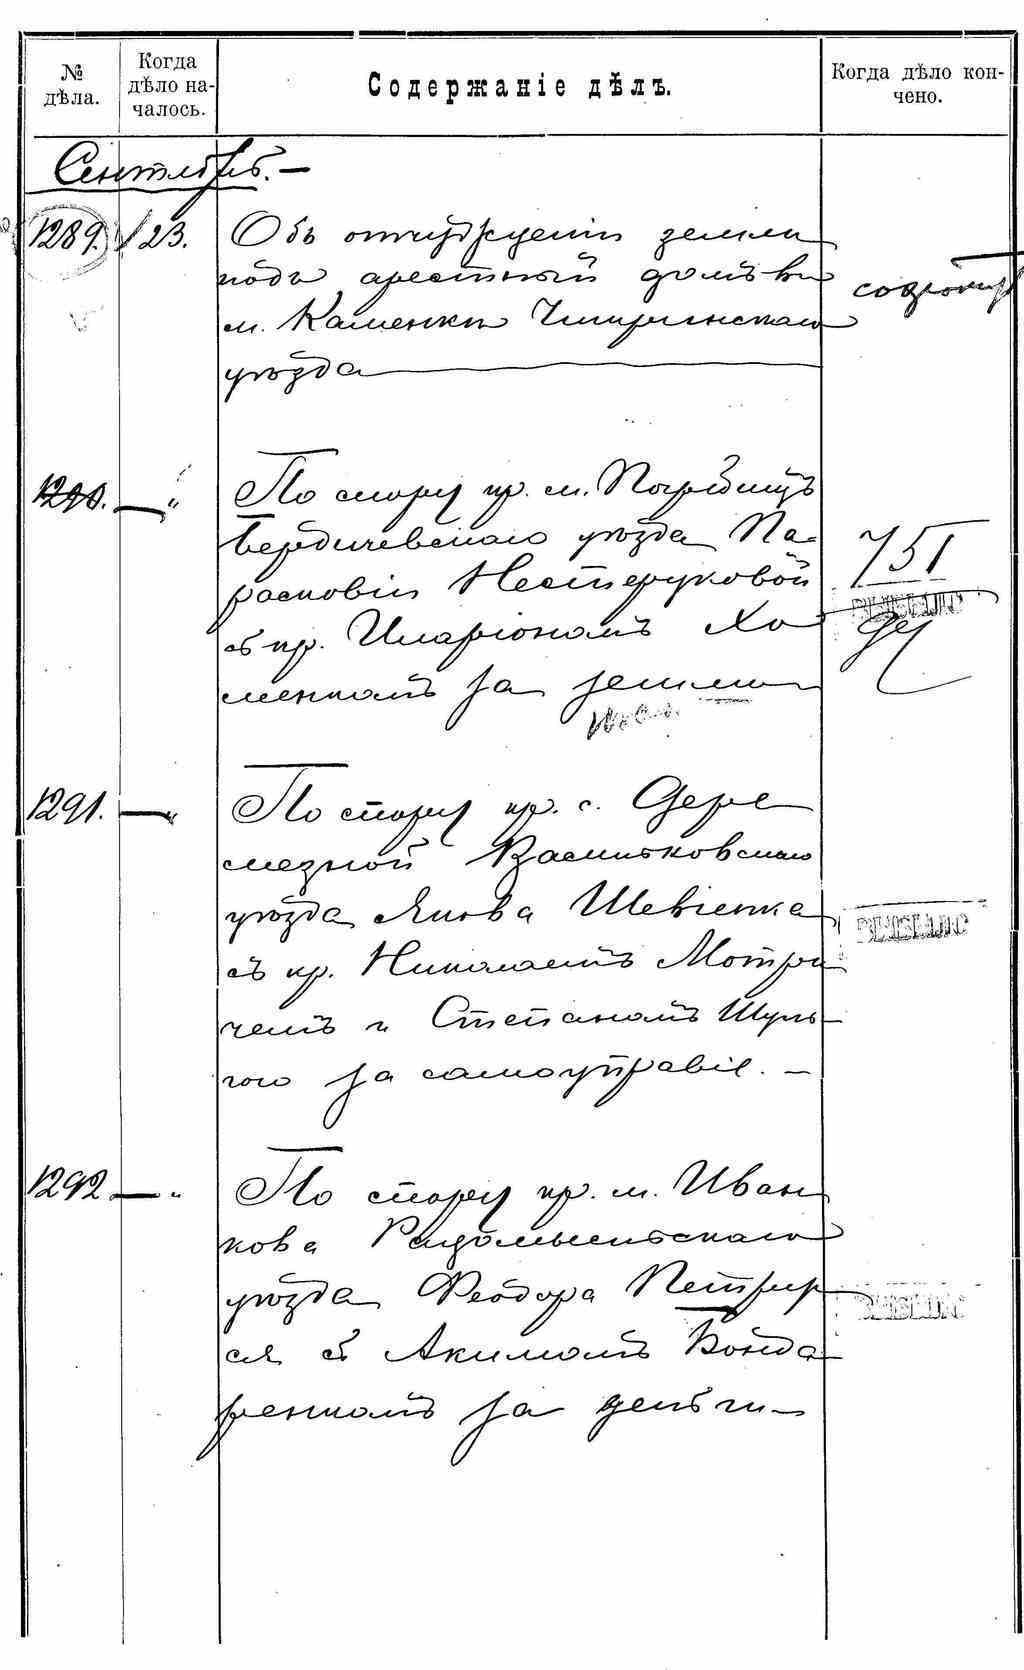 № дѣла.
Когда дѣло на-
чалось.
Содержаніе дѣлъ.
Когда дѣло кон-
чено.
Сентябрь. —
1289. 23. Объ отчужденіи земли
подъ арестный домъ въ
м. Каменкѣ Чигиринскаго
уѣзда
1290. — " По спору кр. м. Погребищъ
Бердичевскаго уѣзда Па-
расковіи Нестеруковой
съ кр. Иларіономъ Хо
менкомъ за землю
751
1291. — " По спору кр. с. Дере
мезной Васильковскаго
уѣзда Якова Шевченка
съ кр. Николаемъ Мотри
чемъ и Степаномъ Шуль-
гою за самоуправіе. —
1292 — " По спору кр. м. Иван
кова Радомысльскаго
уѣзда Феодора Петрур
ся съ Акимомъ Бонда
ренкомъ за деньги —